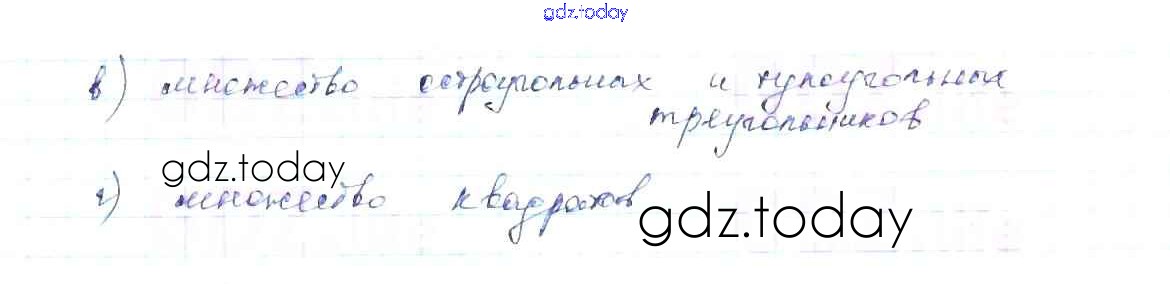 gdz.today
в) множество остроугольных и тупоугольных
треугольников
gdz.today
г) множество квадратов
gdz.today